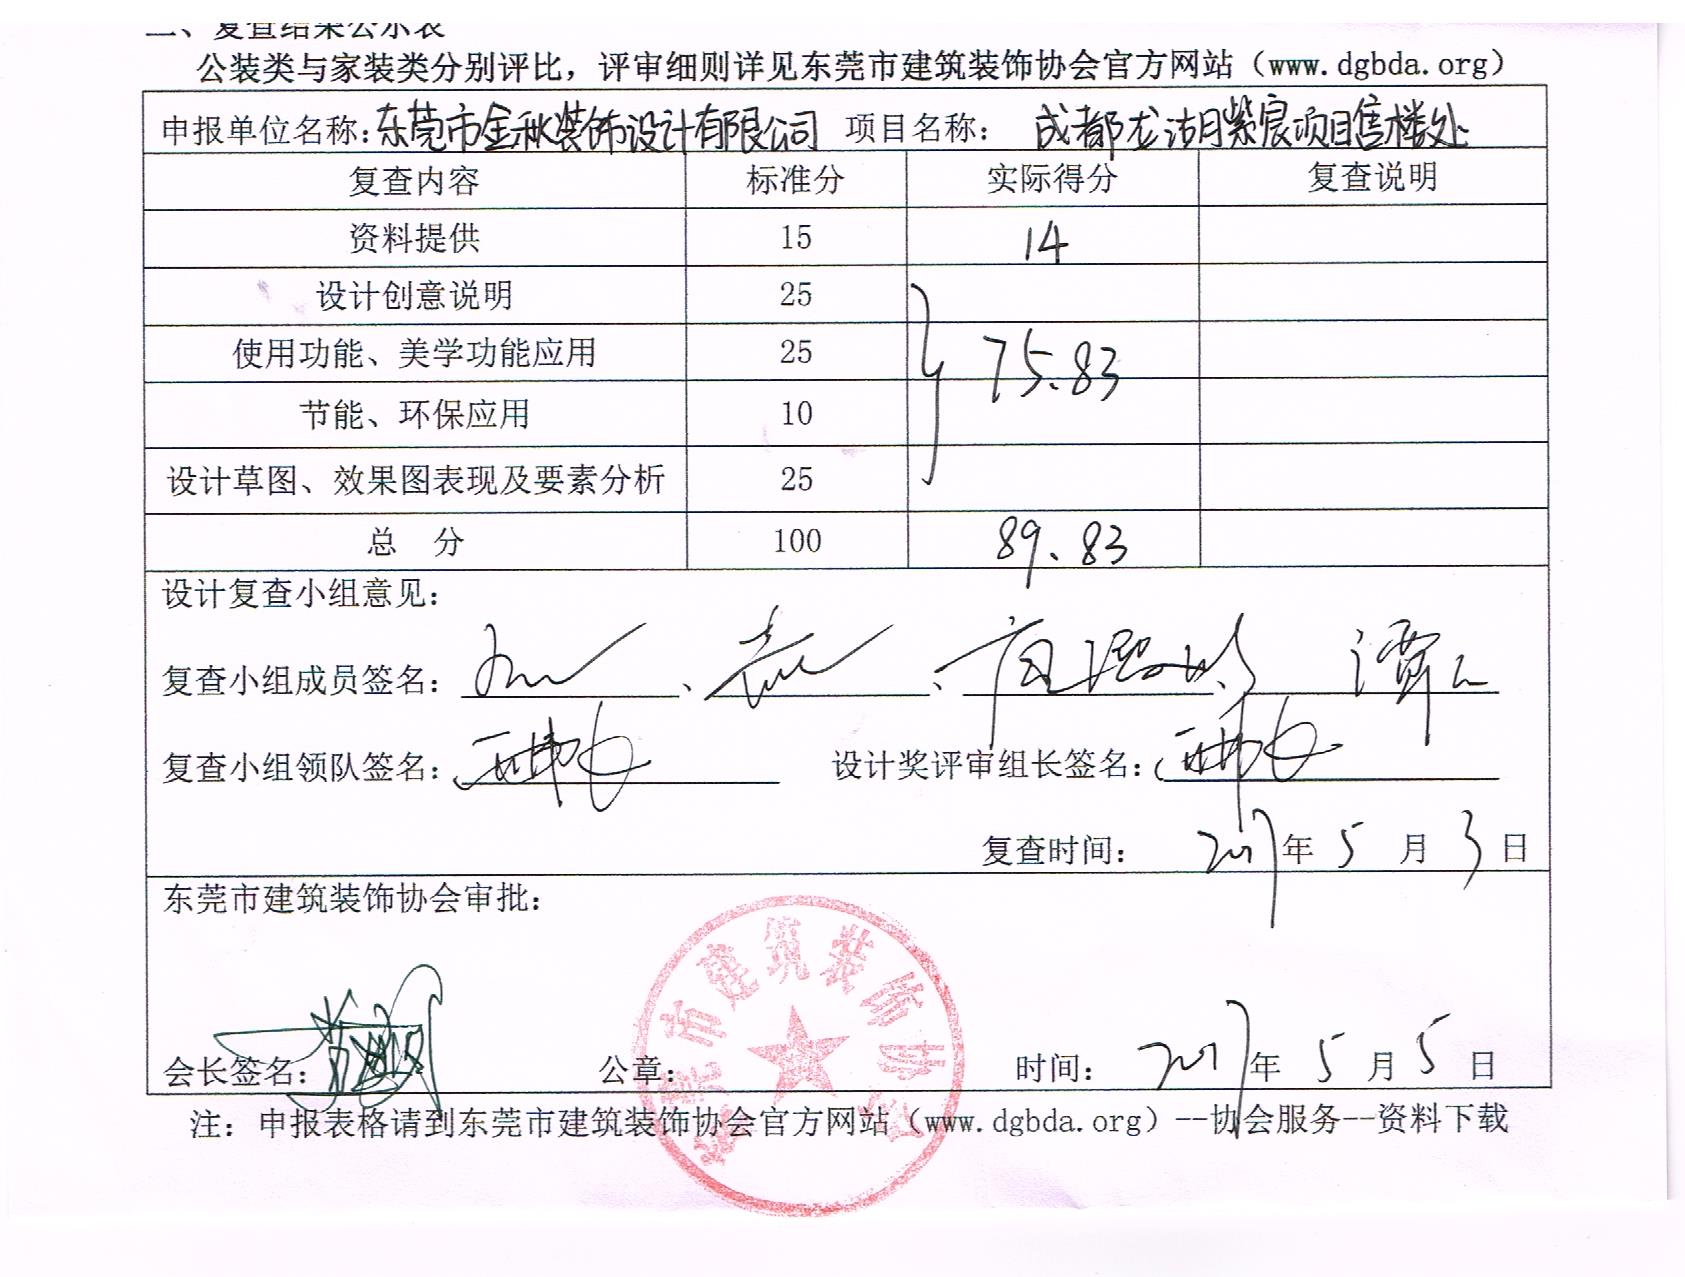 二、复查结果公示表
公装类与家装类分别评比，评审细则详见东莞市建筑装饰协会官方网站（www.dgbda.org）
申报单位名称：东莞市金秋装饰设计有限公司 项目名称： 成都龙湖紫宸项目售楼处
复查内容 标准分 实际得分 复查说明
资料提供 15 14
设计创意说明 25
使用功能、美学功能应用 25 75.83
节能、环保应用 10
设计草图、效果图表现及要素分析 25
总 分 100 89.83
设计复查小组意见：
复查小组成员签名：
复查小组领队签名： 设计奖评审组长签名：
复查时间： 2017年 5 月 3 日
东莞市建筑装饰协会审批：
东莞市建筑装饰协会
会长签名： 公章： 时间： 2017年 5 月 5 日
注：申报表格请到东莞市建筑装饰协会官方网站（www.dgbda.org）--协会服务--资料下载